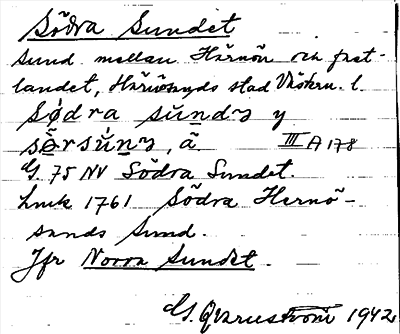 Södra Sundet
Sund mellan Härnön och fast-
landet, Härnösands stad Västern. l.
sǿdra sun̥dɜ y
sø̄rsún̥ɜ, ä. III A 178
G. 75 NV Södra Sundet.
Lmk 1761 Södra Hernö-
sands Sund.
Jfr Norra Sundet.
G. Qvarnström 1942